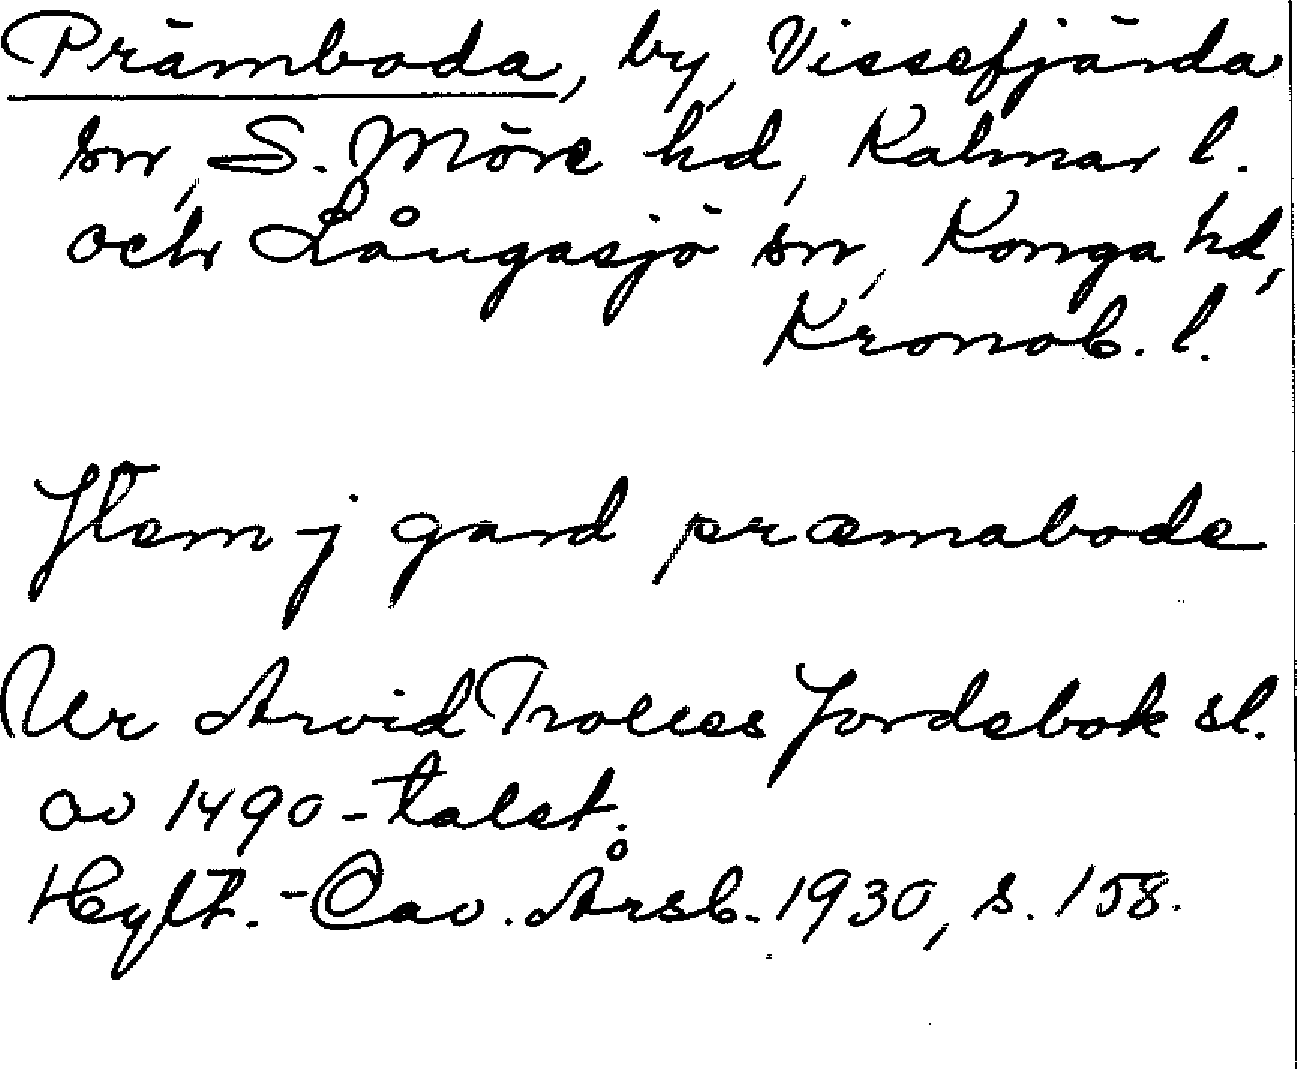 Prämboda, by, Vissefjärda
sn, S. Möre hd, Kalmar l.
och Långasjö sn, Konga hd,
Kronob. l.
Item j gard præmabode
Ur Arvid Trolles Jordebok sl.
av 1490-talet.
Hylt.-Cav. Årsb. 1930, s. 158.